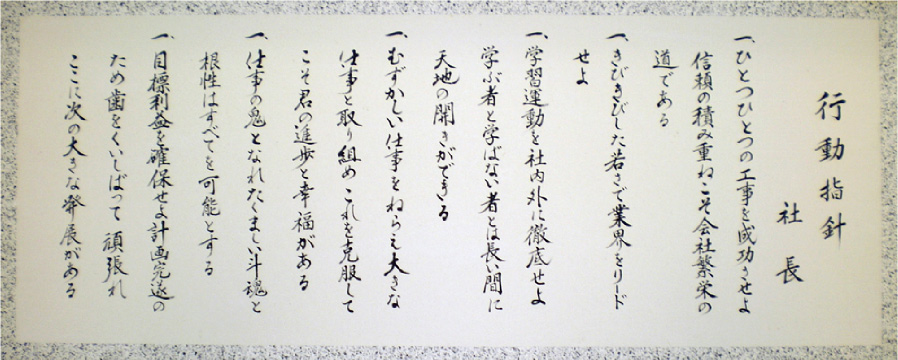 行動指針
社長
一、ひとつひとつの工事を成功させよ
信頼の積み重ねこそ会社繁栄の
道である
一、きびきびした若さで業界をリード
せよ
一、学習運動を社内外に徹底せよ
学ぶ者と学ばない者とは長い間に
天地の開きができる
一、むずかしい仕事をねらえ大きな
仕事と取り組めこれを克服して
こそ君の進歩と幸福がある
一、仕事の鬼となれたくましい斗魂と
根性はすべてを可能とする
一、目標利益を確保せよ計画完遂の
ため歯をくいしばって頑張れ
ここに次の大きな発展がある